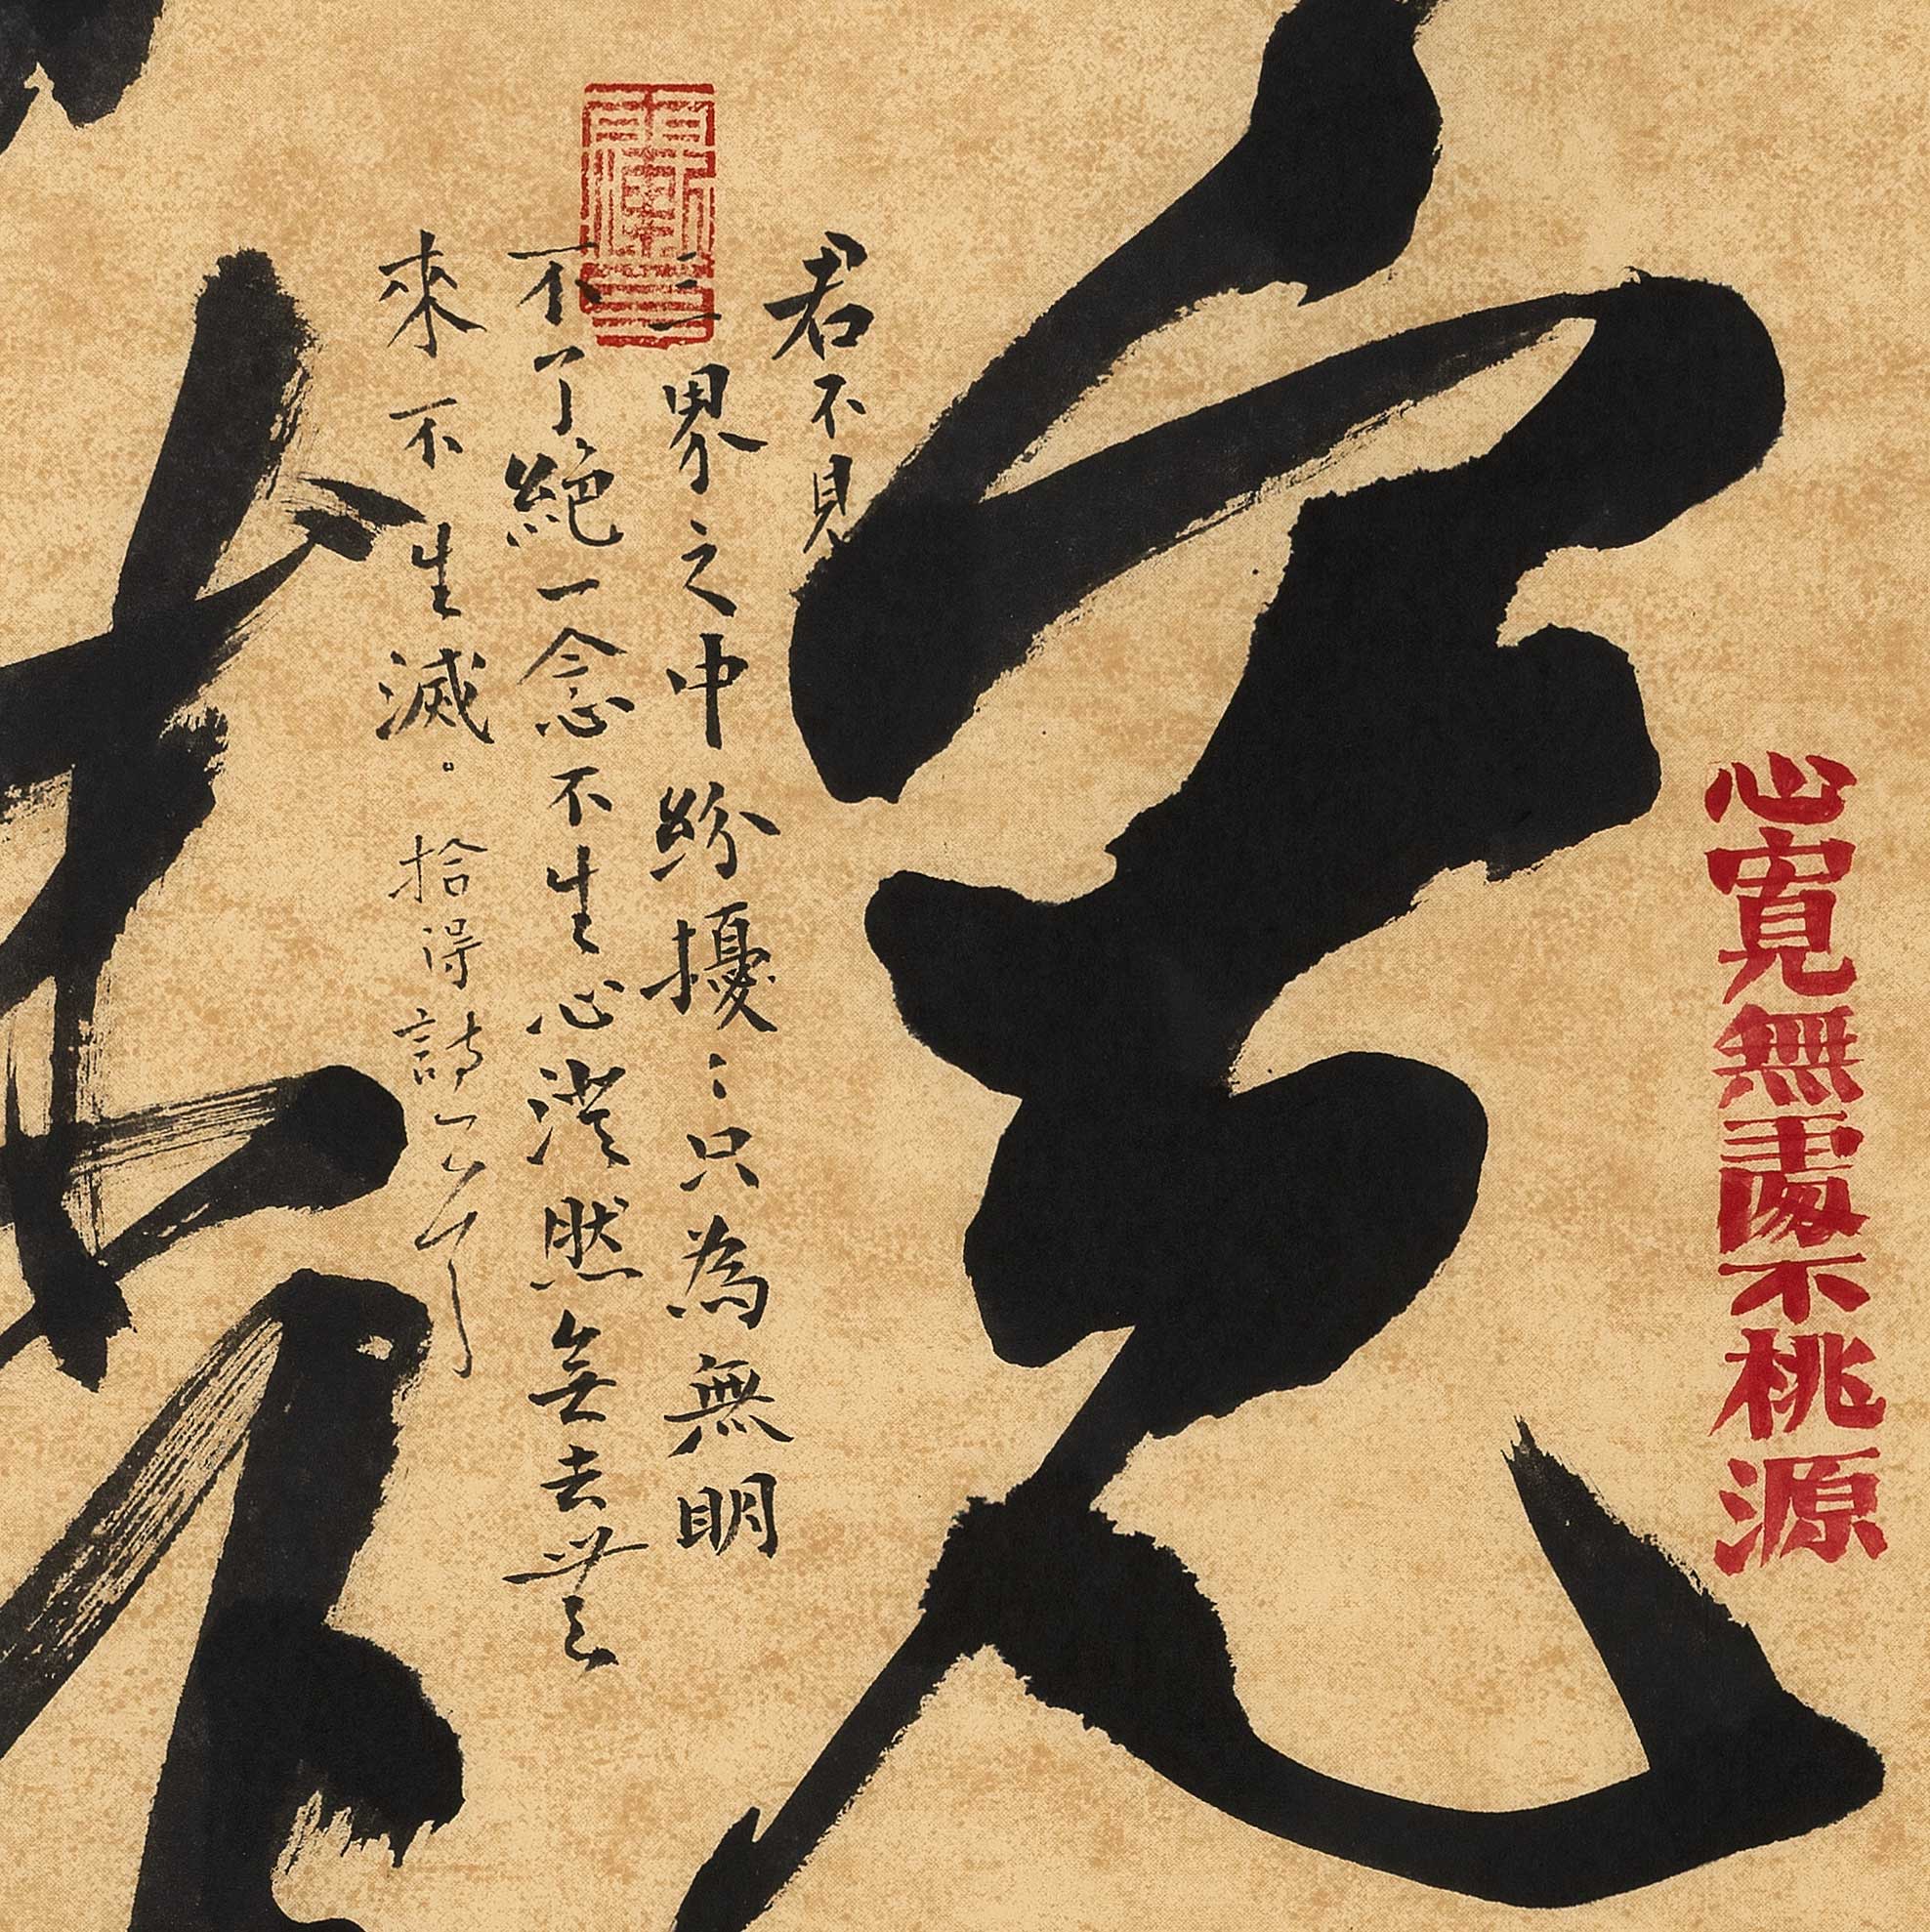 心寬無處不桃源
君不見
三界之中紛擾〻只為無明
不了絕一念不生心澄然無去無
來不生滅。拾得詩